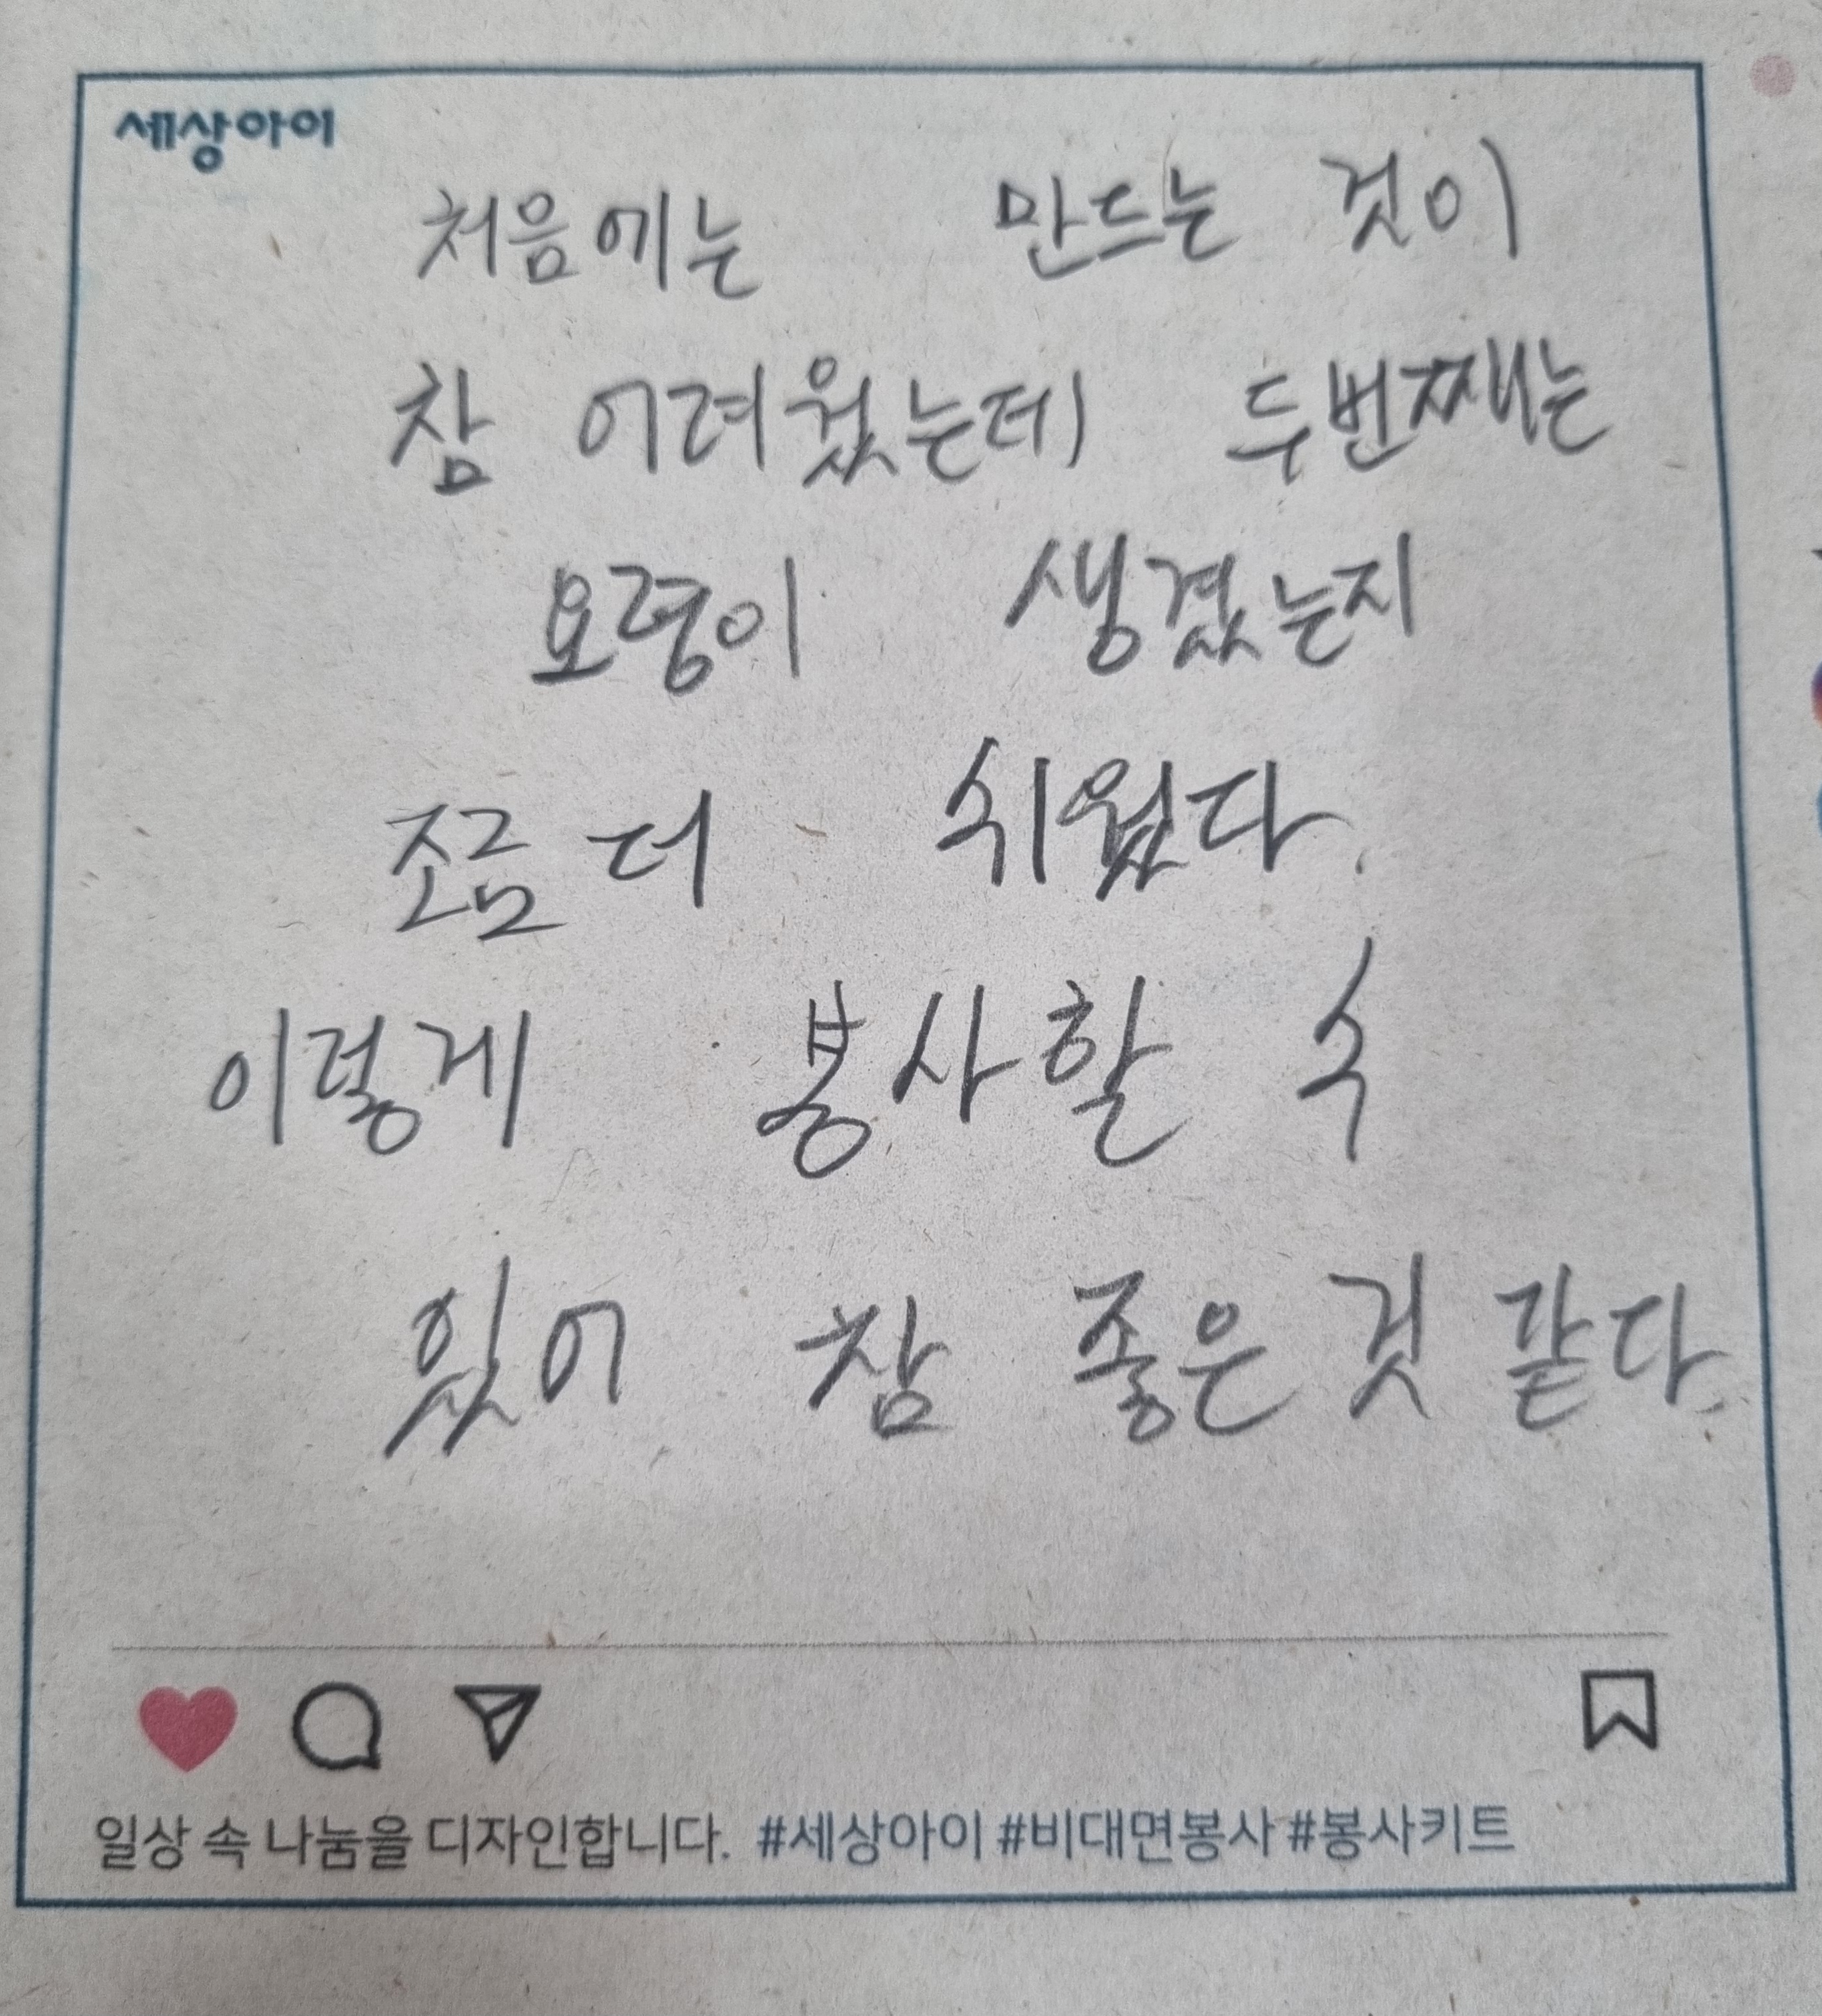 세상아이
처음에는 만드는 것이
참 어려웠는데 두번째는
요령이 생겼는지
조금 더 쉬웠다.
이렇게 봉사할 수
있어 참 좋은 것 같다.
일상 속 나눔을 디자인합니다. #세상아이 #비대면봉사 #봉사키트